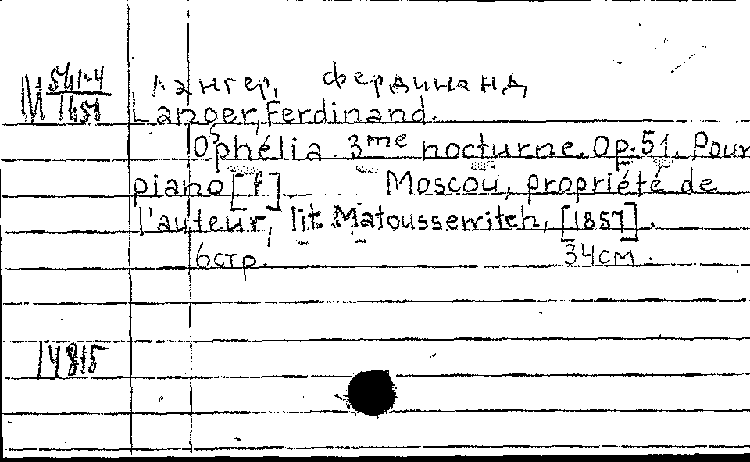 М 561-4
1651
Лангер, Фердинанд
Langer, Ferdinand.
Ophélia 3me nocturne. Op. 51. Pour
piano [f.] Moscou, propriété de
l'auteur, lit. Matoussewitch, [1857].
6 стр. 34 см.
14815